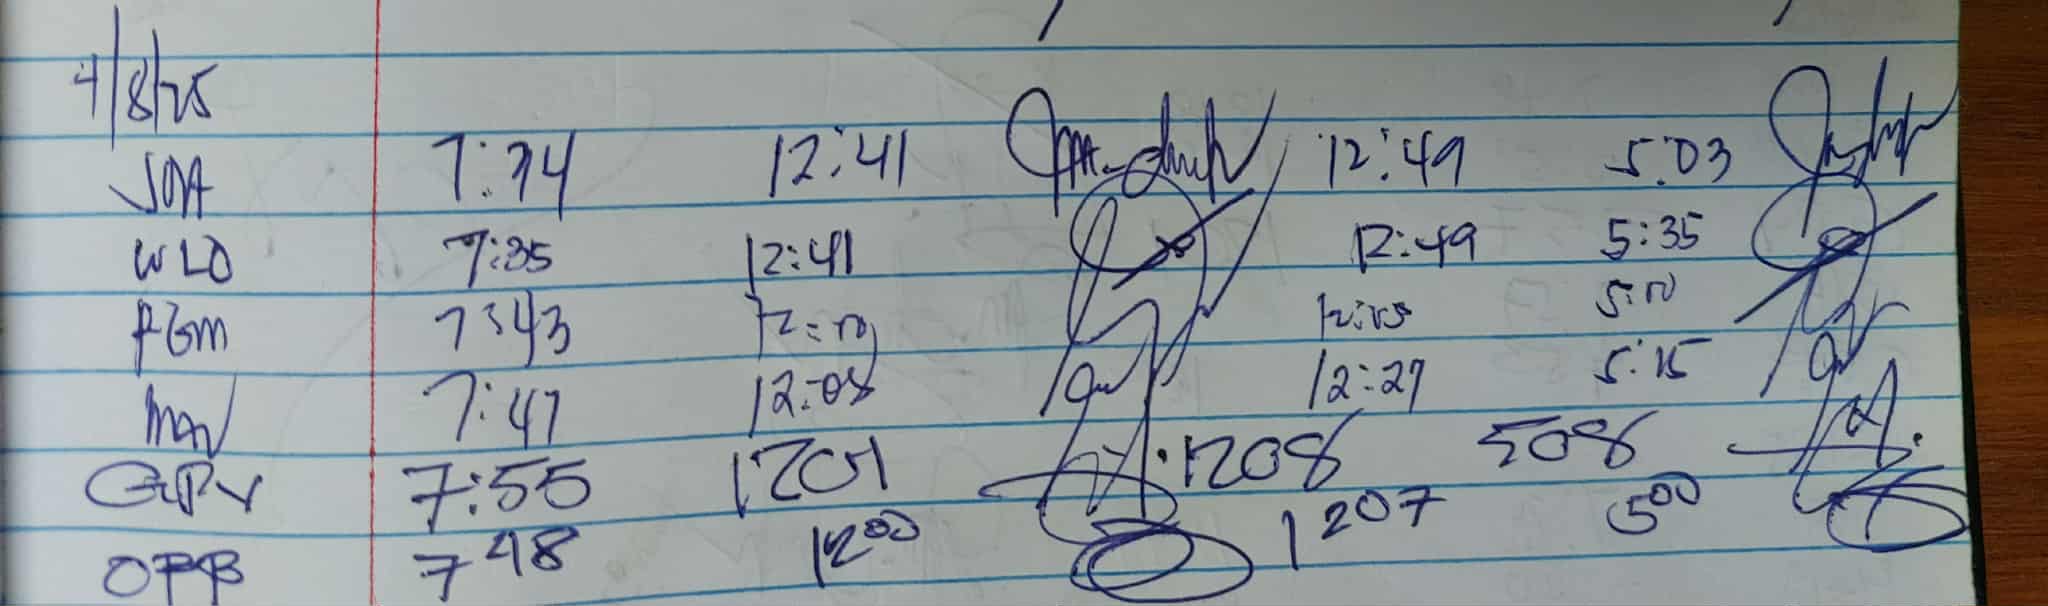 4/8/25
JOA 7:34 12:41 12:49 5:03
WLO 7:35 12:41 12:49 5:35
PGM 7:43 12:10 12:15 5:10
7:47 12:08 12:27 5:15
7:55 1201 1208 508
OPB 7 48 12 00 1207 5 00